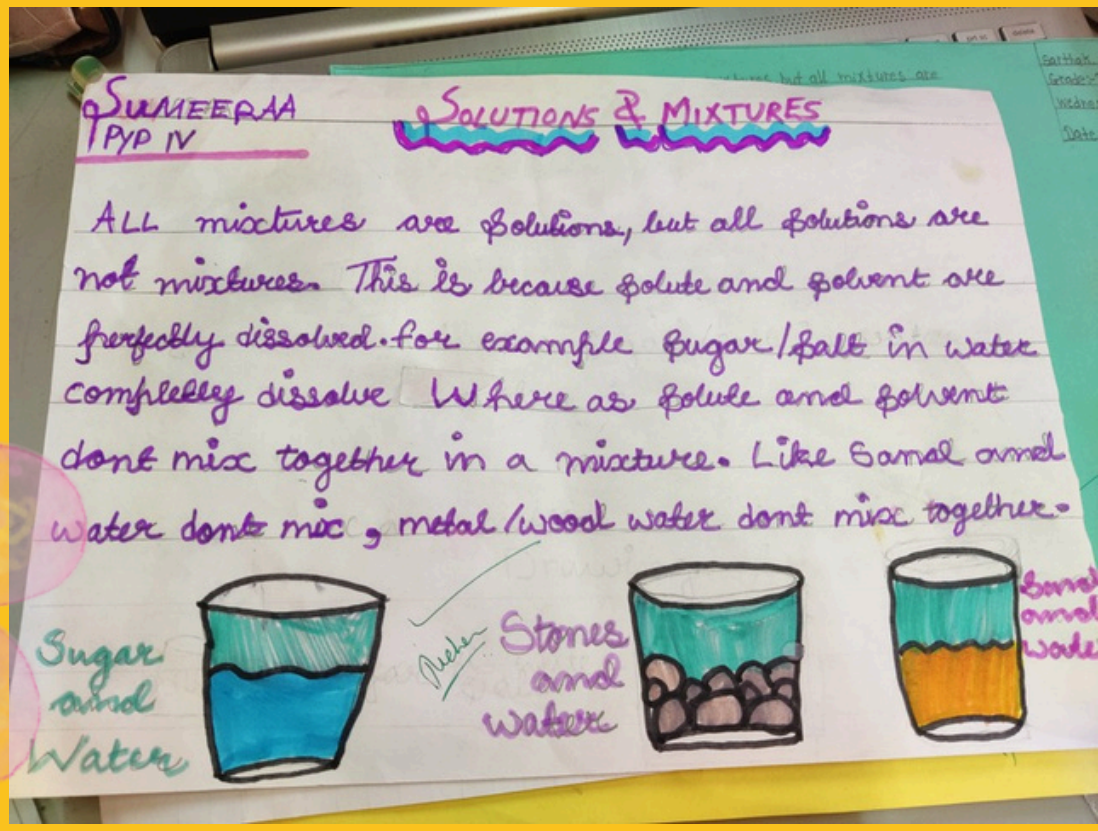 SUMEERAA
PYP IV
SOLUTIONS & MIXTURES
ALL mixtures are solutions, but all solutions are
not mixtures. This is because solute and solvent are
perfectly dissolved. for example sugar/salt in water
completely dissolve Where as solute and solvent
dont mix together in a mixture. Like Sand and
water dont mix, metal/wood water dont mix together.
Sugar
and
Water
Stones
and
water
Sand
and
water
but all mixtures are
Sarthak
Grade
Date
delete